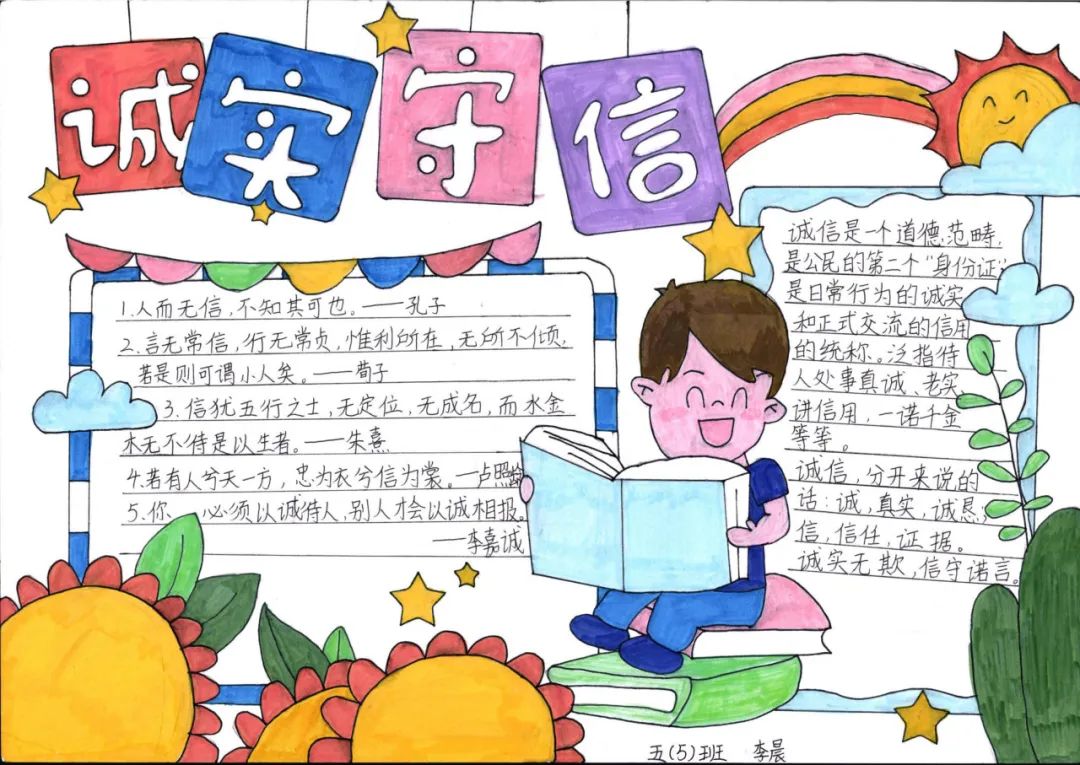 诚实守信
1.人而无信，不知其可也。——孔子
2.言无常信，行无常贞，惟利所在，无所不倾，
若是则可谓小人矣。——荀子
3.信犹五行之土，无定位，无成名，而水金
木无不待是以生者。——朱熹
4.若有人兮天一方，忠为衣兮信为裳。—卢照龄
5.你 必须以诚待人，别人才会以诚相报。
——李嘉诚
诚信是一个道德范畴，
是公民的第二个“身份证”
是日常行为的诚实
和正式交流的信用
的统称。泛指待
人处事真诚、老实
讲信用，一诺千金
等等。
诚信，分开来说的
话：诚，真实，诚恳；
信，信任，证据。
诚实无欺，信守诺言。
五(5)班 李晨